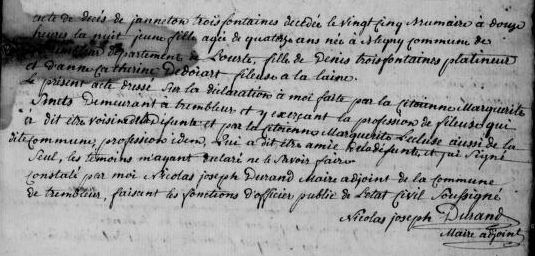 acte de décés de janneton troisfontaines decedée le vingt cinq brumaire à douze
heures la nuit jeune fille agée de quatorze ans née à commune de
département de Lourte, fille de Denis troisfontaines platineur
et d'anne Catherine Dedoiart fileuse a la laine.
Le présent acte dressé Sur la déclaration à moi faite par la citoienne Marguerite
Smets Demeurant à trembleur et y exerçant la profession de fileuse qui
à dit être voisine dela défunte et par la citoienne Marguerite Lecluse aussi de la
dite commune, profession idem, qui a dit être amie dela défunte, et qui Signé
Seul, les témoins m'ayant declaré ne le Savoir faire
Constaté par moi Nicolas joseph Durand Maire adjoint de la commune
de trembleur, faisant les fonctions d'officier public de l'etat Civil Soussigné
Nicolas joseph Durand
Maire adjoint